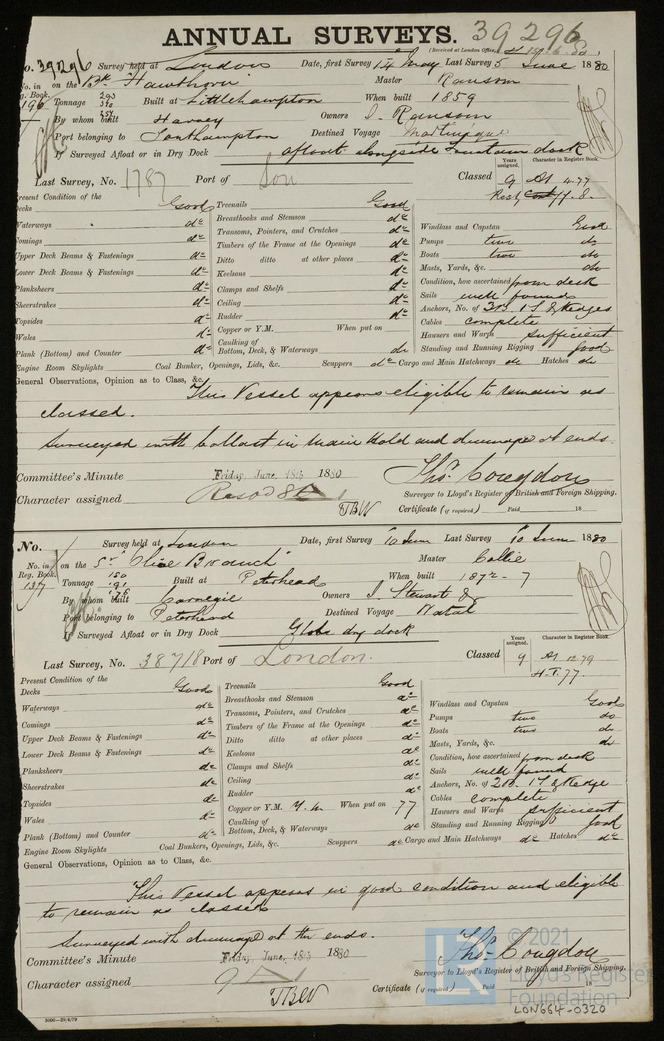 ANNUAL SURVEYS. 39296
(Received at London Office,
No. 39296 Survey held at London Date, first Survey 14 May Last Survey 5 June 1880
No. in Reg. Book. on the Bk Hawthorn Master Ransom
196 Tonnage 293 Built at Littlehampton When built 1859
By whom built Harvey Owners Ransom
Port belonging to Southampton Destined Voyage Martinique
If Surveyed Afloat or in Dry Dock afloat alongside Fountain dock
Last Survey, No. 1787 Port of Lon Classed Years assigned. 9 Character in Register Book. A1 4.77
Present Condition of the
Decks Good
Waterways do
Comings do
Upper Deck Beams & Fastenings do
Lower Deck Beams & Fastenings do
Planksheers do
Sheerstrakes do
Topsides do
Wales do
Plank (Bottom) and Counter do
Engine Room Skylights
Treenails Good
Breasthooks and Stemson do
Transoms, Pointers, and Crutches do
Timbers of the Frame at the Openings do
Ditto ditto at other places do
Keelsons do
Clamps and Shelfs do
Ceiling do
Rudder do
Copper or Y.M. When put on
Caulking of Bottom, Deck, & Waterways do
Coal Bunker, Openings, Lids, &c. Scuppers do
Windlass and Capstan Good
Pumps two do
Boats two do
Masts, Yards, &c. do
Condition, how ascertained from deck
Sails well found
Anchors, No. of 3B. 1S & Kedges
Cables complete
Hawsers and Warps sufficient
Standing and Running Rigging good
Cargo and Main Hatchways do Hatches do
General Observations, Opinion as to Class, &c.
This Vessel appears eligible to remain as
classed.
Surveyed with ballast in main hold and dunnage at ends.
Committee's Minute Friday June, 18th 1880 Thos. Congdon
Surveyor to Lloyd's Register of British and Foreign Shipping.
Character assigned
TBW Certificate (if required) Paid 18
No. Survey held at London Date, first Survey 10 Jun Last Survey 10 Jun 1880
No. in Reg. Book. on the "Olive Branch" Master Collie
137 Tonnage 191 Built at Peterhead When built 1872 - 7
By whom built Carnegie Owners Stewart &
Port belonging to Peterhead Destined Voyage Natal
If Surveyed Afloat or in Dry Dock Globe dry dock
Last Survey, No. 38718 Port of London. Classed Years assigned. 9 Character in Register Book. A1 12.79
H.T. 77.
Present Condition of the
Decks Good
Waterways do
Comings do
Upper Deck Beams & Fastenings do
Lower Deck Beams & Fastenings do
Planksheers do
Sheerstrakes do
Topsides do
Wales do
Plank (Bottom) and Counter do
Engine Room Skylights
Treenails Good
Breasthooks and Stemson do
Transoms, Pointers, and Crutches do
Timbers of the Frame at the Openings do
Ditto ditto at other places do
Keelsons do
Clamps and Shelfs do
Ceiling do
Rudder do
Copper or Y.M. Y.M. When put on 77
Caulking of Bottom, Deck, & Waterways do
Coal Bunkers, Openings, Lids, &c. Scuppers do
Windlass and Capstan Good
Pumps two do
Boats two do
Masts, Yards, &c. do
Condition, how ascertained from deck
Sails well found
Anchors, No. of 2B. 1S & Kedge
Cables complete
Hawsers and Warps sufficient
Standing and Running Rigging good
Cargo and Main Hatchways do Hatches do
General Observations, Opinion as to Class, &c.
This Vessel appears in good condition and eligible
to remain as classed
Surveyed with dunnage at the ends.
Committee's Minute Friday, June, 18th 1880 Thos. Congdon
Surveyor to Lloyd's Register of British and Foreign Shipping.
Character assigned 9 A1
TBW Certificate (if required) Paid 18
© 2021
Lloyd's Register
Foundation
LON664-0320